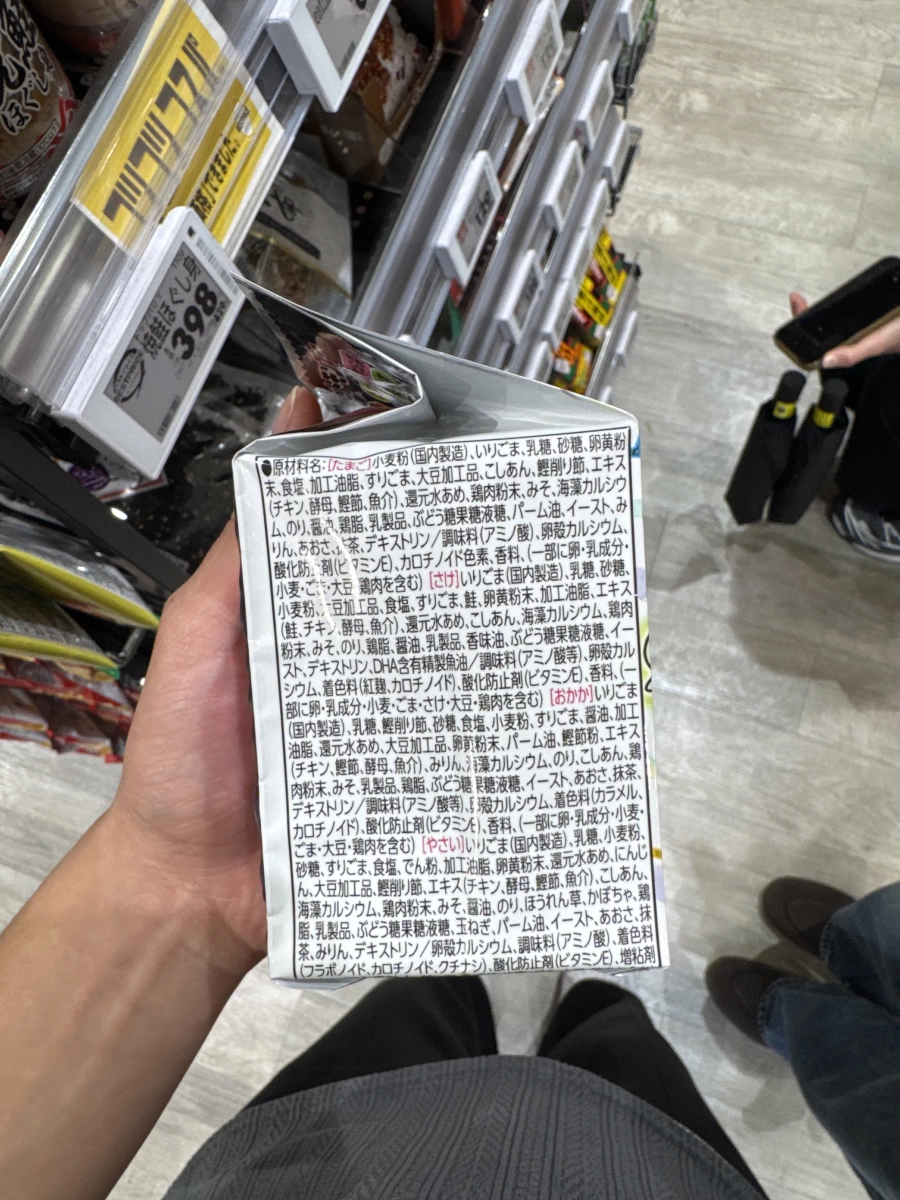 コツコツコスパ
できました。
焼鮭ほぐし
398
ほぐし
●原材料名:[たまご]小麦粉(国内製造)、いりごま、乳糖、砂糖、卵黄粉
末、食塩、加工油脂、すりごま、大豆加工品、こしあん、鰹削り節、エキス
(チキン、酵母、鰹節、魚介)、還元水あめ、鶏肉粉末、みそ、海藻カルシウ
ム、のり、醤油、鶏脂、乳製品、ぶどう糖果糖液糖、パーム油、イースト、み
りん、あおさ、抹茶、デキストリン/調味料(アミノ酸)、卵殻カルシウム、
酸化防止剤(ビタミンE)、カロチノイド色素、香料、(一部に卵・乳成分・
小麦・ごま・大豆・鶏肉を含む) [さけ]いりごま(国内製造)、乳糖、砂糖、
小麦粉、大豆加工品、食塩、すりごま、鮭、卵黄粉末、加工油脂、エキス
(鮭、チキン、酵母、魚介)、還元水あめ、こしあん、海藻カルシウム、鶏肉
粉末、みそ、のり、鶏脂、醤油、乳製品、香味油、ぶどう糖果糖液糖、イー
スト、デキストリン、DHA含有精製魚油/調味料(アミノ酸等)、卵殻カル
シウム、着色料(紅麹、カロチノイド)、酸化防止剤(ビタミンE)、香料、(一
部に卵・乳成分・小麦・ごま・さけ・大豆・鶏肉を含む) [おかか]いりごま
(国内製造)、乳糖、鰹削り節、砂糖、食塩、小麦粉、すりごま、醤油、加工
油脂、還元水あめ、大豆加工品、卵黄粉末、パーム油、鰹節粉、エキス
(チキン、鰹節、酵母、魚介)、みりん、海藻カルシウム、のり、こしあん、鶏
肉粉末、みそ、乳製品、鶏脂、ぶどう糖果糖液糖、イースト、あおさ、抹茶、
デキストリン/調味料(アミノ酸等)、卵殻カルシウム、着色料(カラメル、
カロチノイド)、酸化防止剤(ビタミンE)、香料、(一部に卵・乳成分・小麦・
ごま・大豆・鶏肉を含む) [やさい]いりごま(国内製造)、乳糖、小麦粉、
砂糖、すりごま、食塩、でん粉、加工油脂、卵黄粉末、還元水あめ、にんじ
ん、大豆加工品、鰹削り節、エキス(チキン、酵母、鰹節、魚介)、こしあん、
海藻カルシウム、鶏肉粉末、みそ、醤油、のり、ほうれん草、かぼちゃ、鶏
脂、乳製品、ぶどう糖果糖液糖、玉ねぎ、パーム油、イースト、あおさ、抹
茶、みりん、デキストリン/卵殻カルシウム、調味料(アミノ酸)、着色料
(フラボノイド、カロチノイド、クチナシ)、酸化防止剤(ビタミンE)、増粘剤